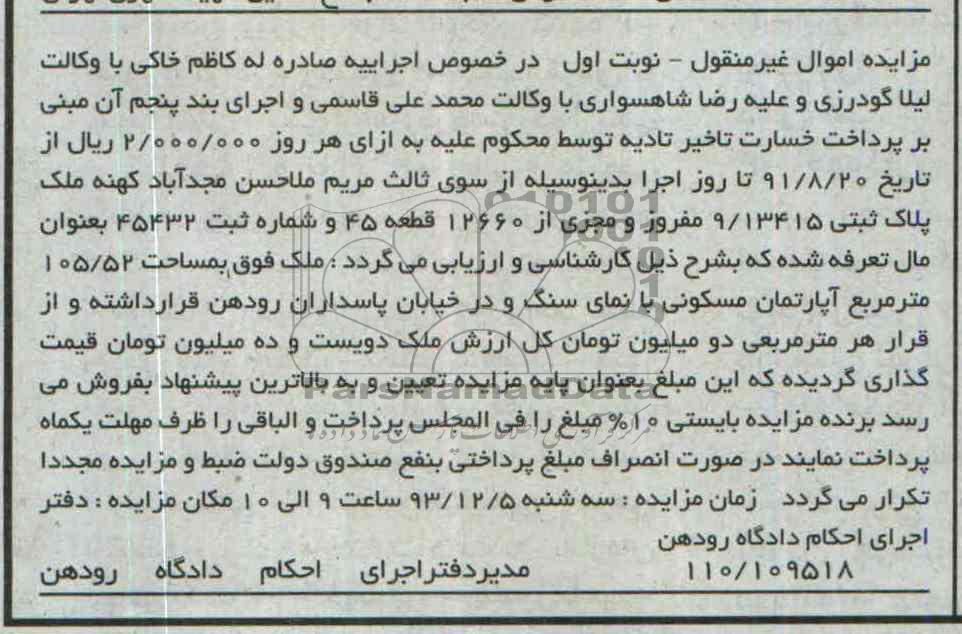 مزایده اموال غیرمنقول – نوبت اول در خصوص اجراییه صادره له کاظم خاکی با وکالت
لیلا گودرزی و علیه رضا شاهسواری با وکالت محمد علی قاسمی و اجرای بند پنجم آن مبنی
بر پرداخت خسارت تاخیر تادیه توسط محکوم علیه به ازای هر روز ۲/۰۰۰/۰۰۰ ریال از
تاریخ ۹۱/۸/۲۰ تا روز اجرا بدینوسیله از سوی ثالث مریم ملاحسن مجدآباد کهنه ملک
پلاک ثبتی ۹/۱۳۴۱۵ مفروز و مجزی از ۱۲۶۶۰ قطعه ۴۵ و شماره ثبت ۴۵۴۳۲ بعنوان
مال تعرفه شده که بشرح ذیل کارشناسی و ارزیابی می گردد : ملک فوق بمساحت ۱۰۵/۵۲
مترمربع آپارتمان مسکونی با نمای سنگ و در خیابان پاسداران رودهن قرارداشته و از
قرار هر مترمربعی دو میلیون تومان کل ارزش ملک دویست و ده میلیون تومان قیمت
گذاری گردیده که این مبلغ بعنوان پایه مزایده تعیین و به بالاترین پیشنهاد بفروش می
رسد برنده مزایده بایستی ۱۰% مبلغ را فی المجلس پرداخت و الباقی را ظرف مهلت یکماه
پرداخت نمایند در صورت انصراف مبلغ پرداختی بنفع صندوق دولت ضبط و مزایده مجددا
تکرار می گردد زمان مزایده : سه شنبه ۹۳/۱۲/۵ ساعت ۹ الی ۱۰ مکان مزایده : دفتر
اجرای احکام دادگاه رودهن
۱۱۰/۱۰۹۵۱۸ مدیردفتراجرای احکام دادگاه رودهن
ParsNamadData